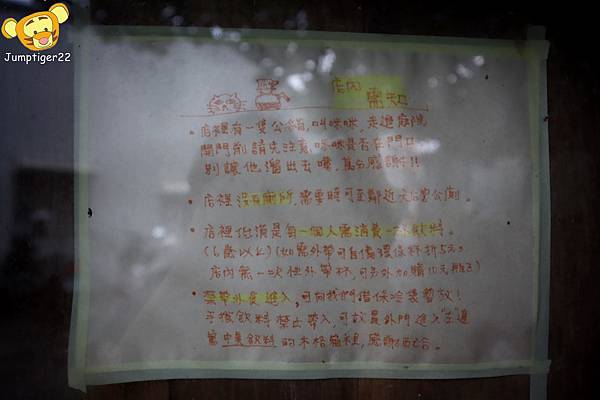 Jumptiger22
店內
需知
• 店裡有一隻公貓,叫咪咪,走進庭院
開門前請先注意,咪咪是否在門口
別讓他溜出去噢,萬分感謝!!
• 店裡沒有廁所,需要時可至鄰近天后宮公廁。
• 店裡低消是每一個人需消費一杯飲料。
(6歲以上)(如需外帶可自備環保杯折5元。
店內無一次性外帶杯,可另外加購10元瓶子)
• 禁帶外食進入,可向我們借保冷袋暫放!
手搖飲料禁止帶入,可放是外門進入"左"邊
寫 中是飲料 的木格櫃裡,感謝配合。